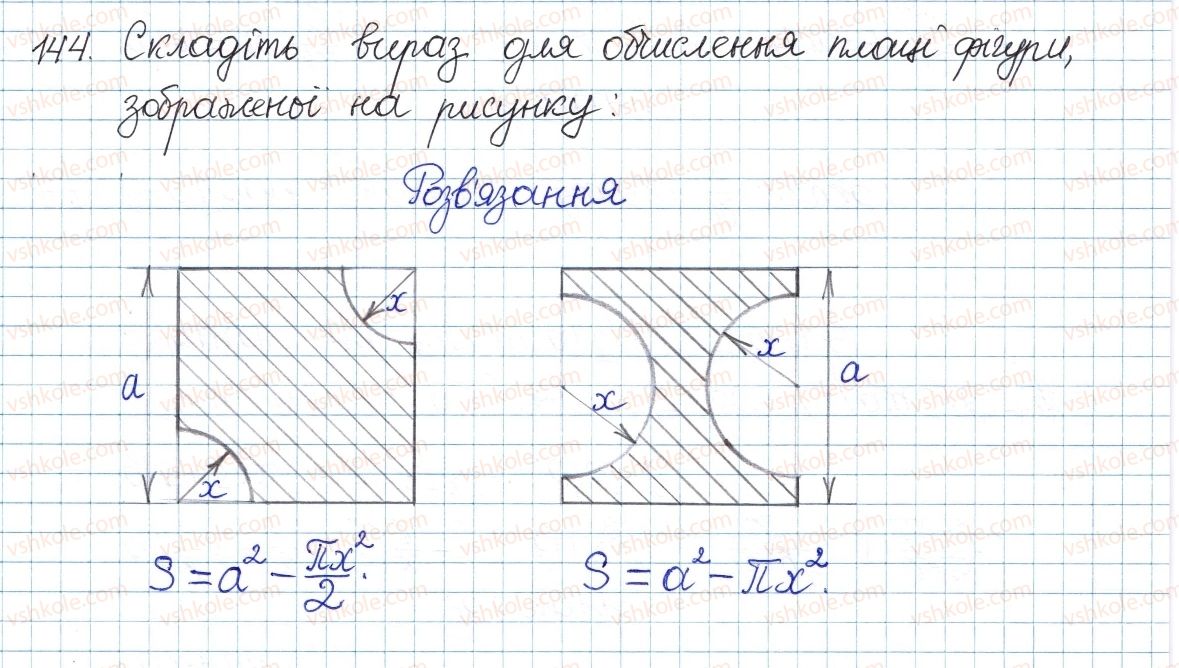 144. Складіть вираз для обчислення площі фігури,
зображеної на рисунку:
Розв'язання
x
x
a
a
x
x
S = a² - πx²/2.
S = a² - πx².